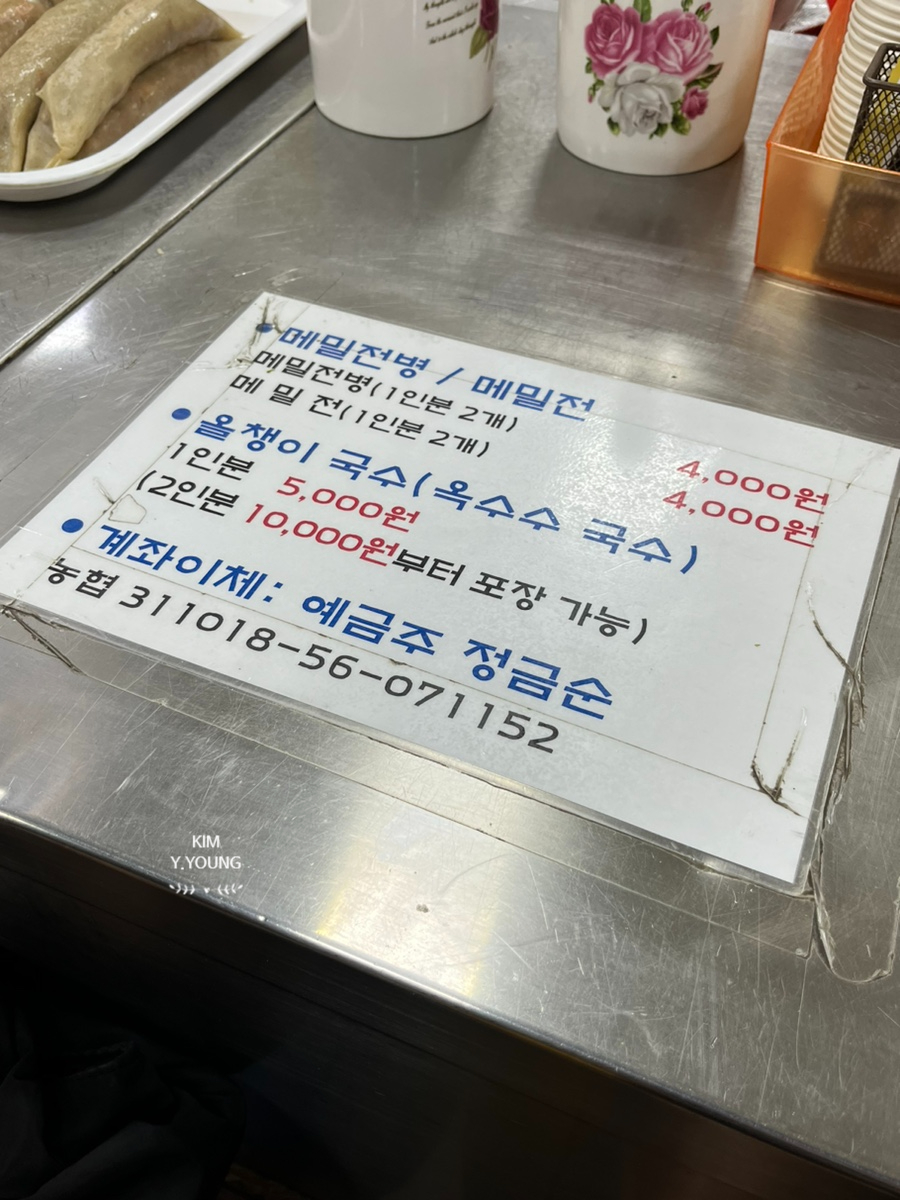 • 메밀전병 / 메밀전
메밀전병(1인분 2개) 4,000원
메 밀 전(1인분 2개) 4,000원
• 올챙이 국수(옥수수 국수)
1인분 5,000원
(2인분 10,000원부터 포장 가능)
• 계좌이체: 예금주 정금순
농협 311018-56-071152
KIM
Y.YOUNG